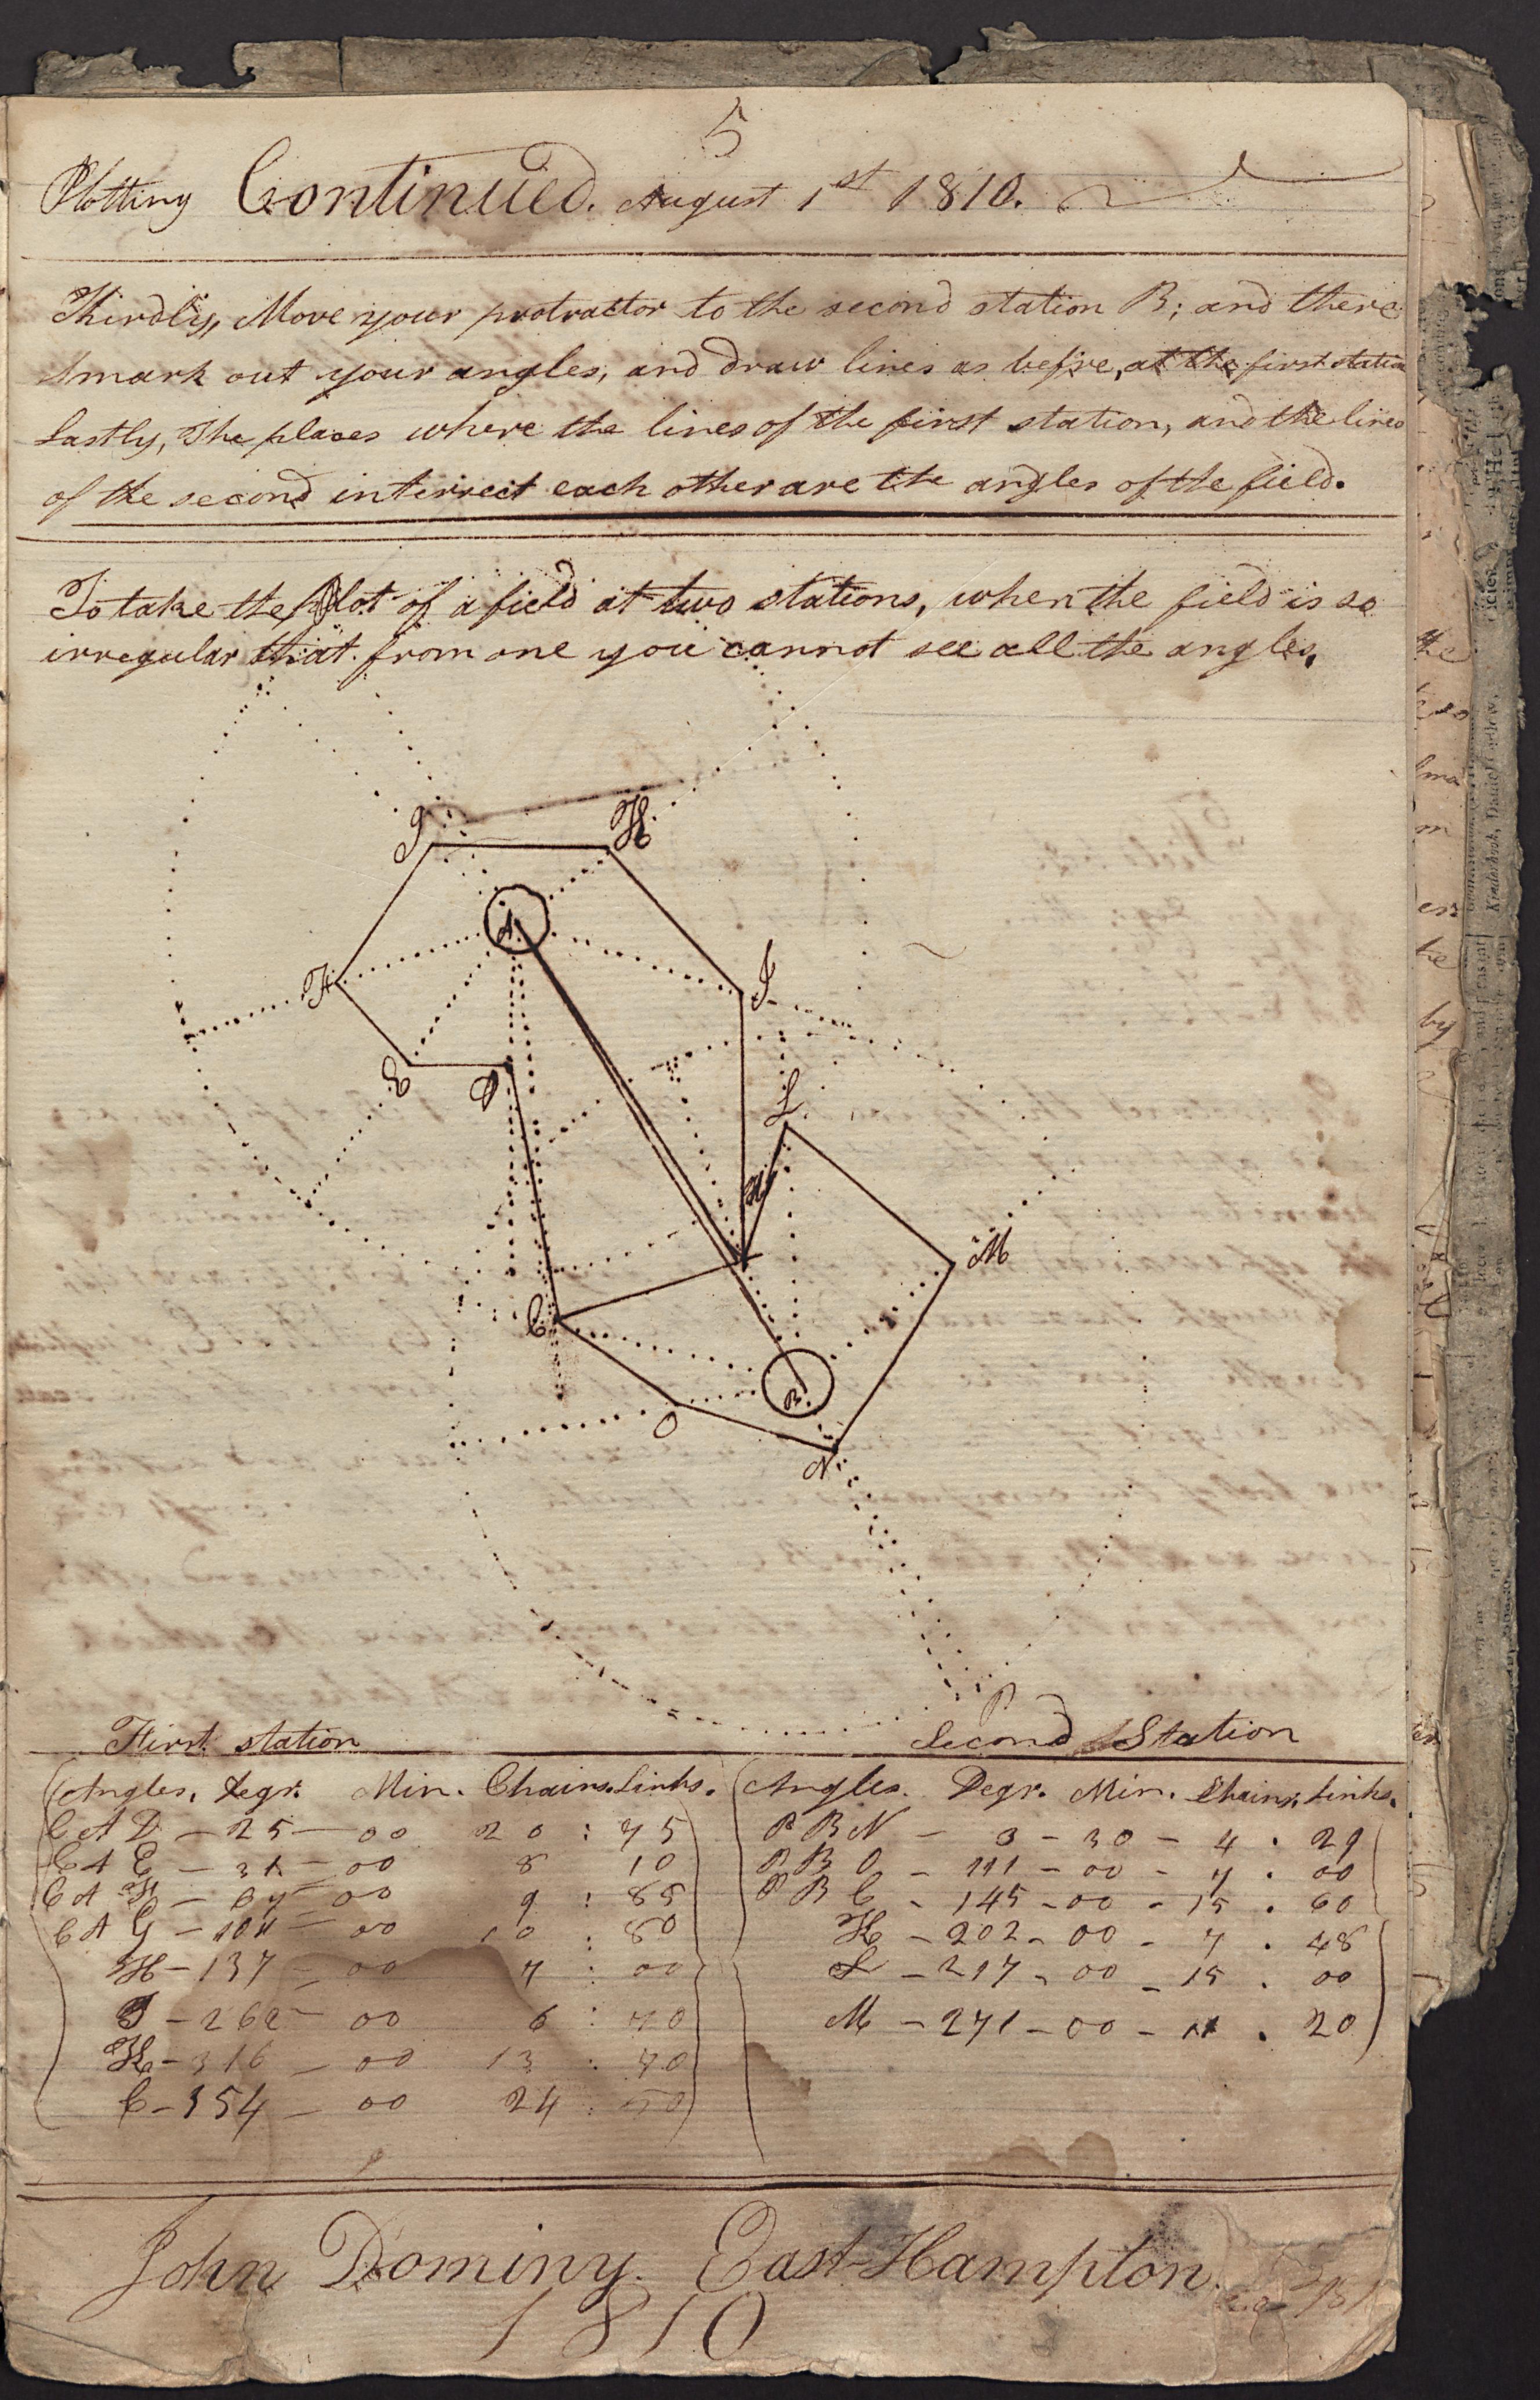 5
Plotting Continued. August 1st 1810.
Thirdly, Move your protractor to the second station B; and there
mark out your angles, and draw lines as before, at the first station
Lastly, The places where the lines of the first station, and the lines
of the second intersect each other are the angles of the field.
To take the Plot of a field at two stations, when the field is so
irregular that from one you cannot see all the angles,
G H
A
F I
E D
L
K
M
C
B
O
N
P
First station
Second Station
Angles. Degr. Min. Chains. Links. Angles. Degr. Min. Chains. Links.
C A D - 25 - 00 20 : 75 P B N - 3 - 30 - 4 . 29
C A E - 31 - 00 8 10 P B O - 111 - 00 - 7 . 00
C A F - 67 - 00 9 : 85 P B C - 145 - 00 - 15 . 60
C A G - 104 - 00 10 : 80 K - 202 - 00 - 7 . 48
H - 137 - 00 7 : 00 L - 217 - 00 - 15 . 00
I - 262 - 00 6 : 70 M - 271 - 00 - 11 . 20
K - 316 - 00 13 : 70
C - 354 - 00 24 : 50
John Dominy. East-Hampton.
1810